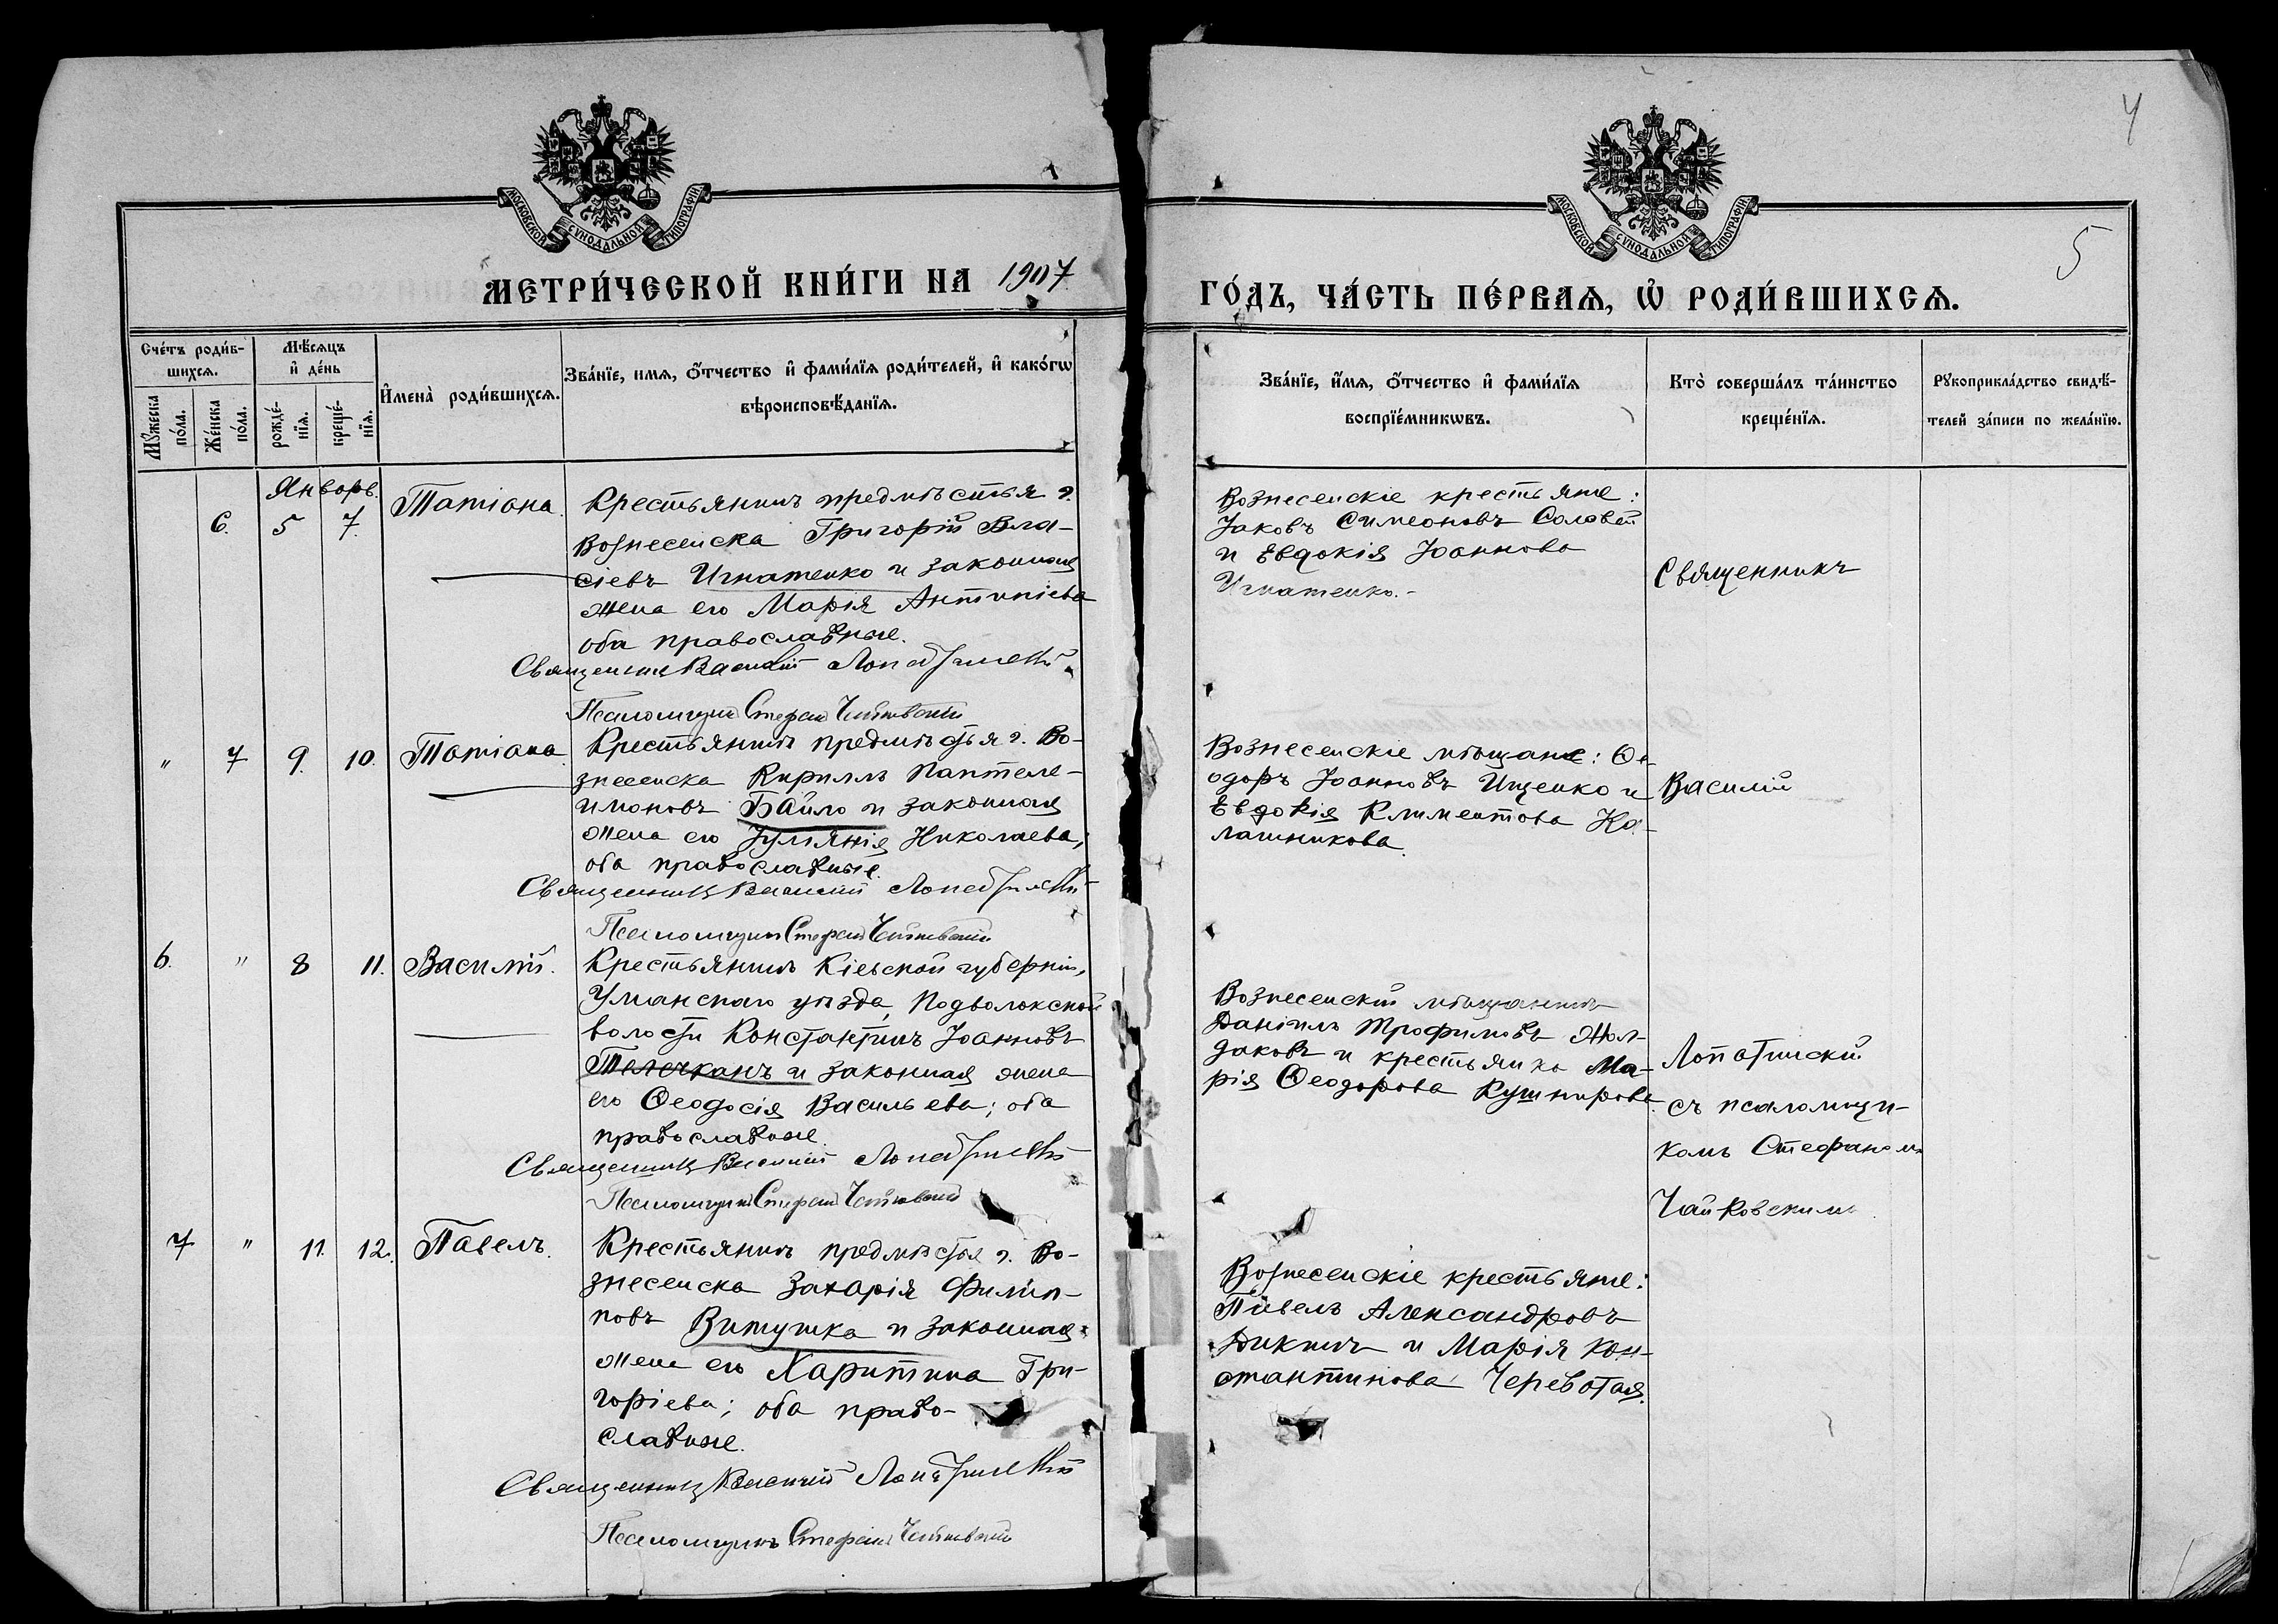 4
5
МОСКОВСКОЙ СУНОДАЛЬНОЙ ТИПОГРАФІИ
МОСКОВСКОЙ СУНОДАЛЬНОЙ ТИПОГРАФІИ
МЕТРИ́ЧЕСКОЙ КНИ́ГИ НА 1907
ГО́ДЪ, ЧА́СТЬ ПЕ́РВАѦ, Ѡ҆ РОДИ́ВШИХСѦ.
Сче́тъ роди́в-
шихсѧ.
Мꙋ́жеска
по́ла.
Же́нска
по́ла.
Мѣ́сѧцъ
и҆ де́нь
рожде́-
нїѧ.
креще́-
нїѧ.
И҆мена̀ роди́вшихсѧ.
Зва́нїе, имѧ, ѻ҆́тчество и҆ фами́лїѧ роди́телей, и҆ како́гѡ
вѣроисповѣ́данїѧ.
Зва́нїе, и҆́мѧ, ѻ҆́тчество и҆ фами́лїѧ
воспрїе́мникѡвъ.
Кто̀ соверша́лъ та́инство
креще́нїѧ.
Рꙋкоприкла́дство свидѣ́-
телей за́писи по жела́нїю.
Январь.
6. 5 7. Татіана.
Крестьянинъ предмѣстья г.
Вознесенска Григорій Вла-
сіевъ Игнатенко и законная
жена его Марія Антипіева
оба православные.
Священникъ Василій Лопатинскій
Псаломщикъ Стефанъ Чайковскій
Вознесенскіе крестьяне:
Іаковъ Симеоновъ Соловей
и Евдокія Іоаннова
Игнатенко.-
Священникъ
" 7 9. 10. Татіана
Крестьянинъ предмѣстья г. Во-
знесенска Кириллъ Пантеле-
имоновъ Байло и законная
жена его Іуліанія Николаева;
оба православные.
Священникъ Василій Лопатинскій
Псаломщикъ Стефанъ Чайковскій
Вознесенскіе мѣщане: Ѳе-
одоръ Іоанновъ Ищенко и
Евдокія Климентова Ка-
лашникова.
Василій
6. " 8 11. Василій.
Крестьянинъ Кіевской губерніи,
Уманскаго уѣзда, Подволокской
волости Константинъ Іоанновъ
Телечканъ и законная жена
его Ѳеодосія Васильева; оба
православные.
Священникъ Василій Лопатинскій
Псаломщикъ Стефанъ Чайковскій
Вознесенскій мѣщанинъ
Даніилъ Трофимовъ Жол-
даковъ и крестьянка Ма-
рія Ѳеодорова Кушнирова.
Лопатинскій
съ псаломщи-
комъ Стефаномъ
Чайковскимъ
7 " 11. 12. Павелъ.
Крестьянинъ предмѣстья г. Во-
знесенска Захарія Филип-
повъ Витушка и законная
жена его Харитина Гри-
горіева; оба право-
славные.
Священникъ Василій Лопатинскій
Псаломщикъ Стефанъ Чайковскій
Вознесенскіе крестьяне:
Павелъ Александровъ
Дикинъ и Марія Кон-
стантинова Череватая.